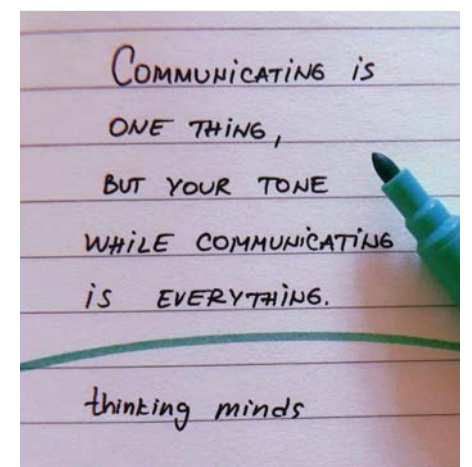 COMMUNiCATiNG is
ONE THiNG,
BUT YOUR TONE
WHiLE COMMUNiCATiNG
iS EVERYTHiNG.
thinking minds